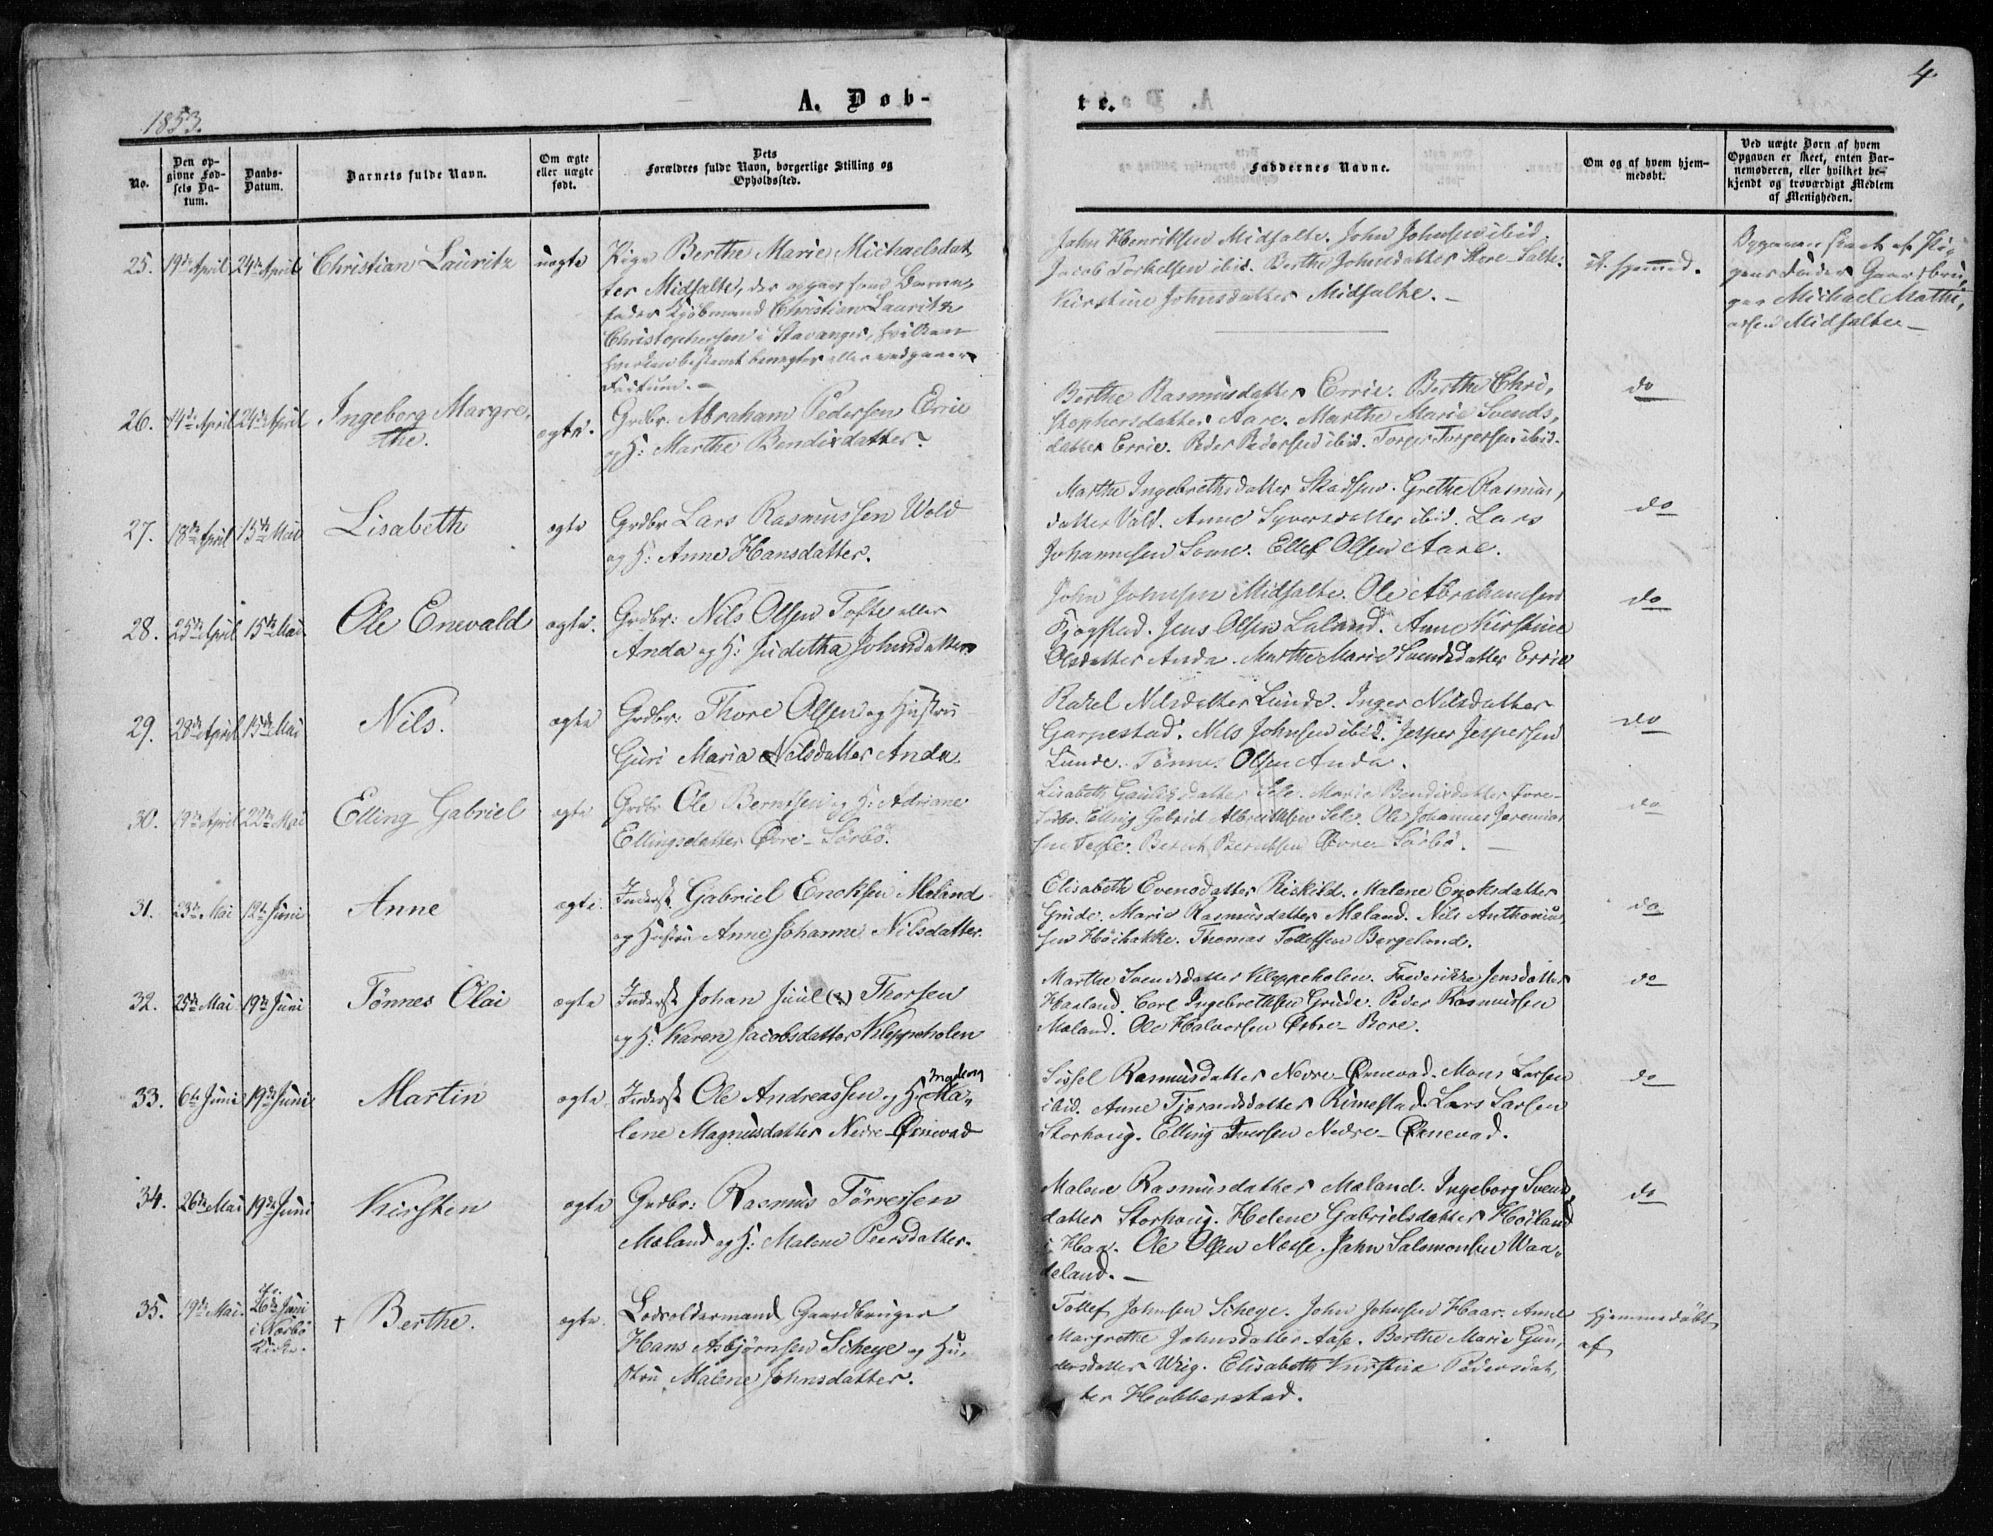 4
1853.
A. Døb-
te.
No.
Den op-
givne Fød-
sels Da-
tum.
Daabs-
Datum.
Barnets fulde Navn.
Om ægte
eller uægte
født.
Dets
Forældres fulde Navn, borgerlige Stilling og
Opholdssted.
Faddernes Navne.
Om og af hvem hjem-
medøbt.
Ved uægte Børn af hvem
Opgaven er skeet, enten Bar-
nemoderen, eller hvilket be-
kjendt og troværdigt Medlem
af Menigheden.
25. 19de April 24de April Christian Lauritz uægte
Pige Berthe Marie Michaelsdat
ter Midsalte, der opgav som Barne-
fader Kjöbmand Christian Lauritz
Christophersen i Stavanger, hvilken
hverken bestemt benegter eller vedgaaer
Factum. —
John Henriksen Midsalte. John Johnsen ibid.
Jacob Torkelsen ibid. Berthe Johnsdatter Store-Salte.
Kirstine Johnsdatter Midsalte. —
Opgaven skeet af Pi-
gens Fader Gaardbru-
ger Michael Mathi-
assen Midsalte —
26. 14de April 24de April Ingeborg Margre-
the. ægte.
Grdbr. Abraham Pedersen Errie
og H: Marthe Bendixdatter.
Berthe Rasmusdatter Errie. Berthe Chri-
stophersdatter Aare. Marthe Marie Svends-
datter Errie. Peder Pedersen ibid. Torger Torgersen ibid.
do
27. 18de April 15de Mai Lisabeth ægte
Grdbr Lars Rasmussen Wold
og H: Anne Hansdatter.
Marthe Ingebrethsdatter Skadsem. Grethe Rasmus-
datter Vold. Anne Syversdatter ibid. Lars
Johannesen Some. Ellef Olsen Aare.
do
28. 25de April 15de Mai Ole Enevald ægte.
Grdbr: Nils Olsen Tofte eller
Anda og H: Juditha Johnsdatter
John Johnsen Midsalte. Ole Abrahamsen
Fjogstad. Jens Olsen Laland. Anne Kirstine
Olsdatter Anda. Marthe Marie Svendsdatter Errie
do
29. 28de April 15de Mai Nils. ægte
Grdbr: Thore Olsen og Hustru
Guri Maria Nilsdatter Anda.
Rakel Nilsdatter Lunde. Inger Nilsdatter
Garpestad. Nils Johnsen ibid. Jesper Jespersen
Lunde. Tönnes Olsen Anda.
do
30. 19de April 22de Mai Elling Gabriel ægte
Grdbr Ole Berntsen og H: Adriane
Ellingsdatter Øvre-Sörbö.
Marie Bendixdatter
Elling Gabriel Albretthsen Sele. Ole Johannes Jeremias
sen Bernt Berntsen Øvre Sörbö. —
do
31. 23de Mai 12te Juni Anne ægte.
Inderst Gabriel Enoksen Maland
og Hustru Anne Johanne Nilsdatter.
Elisabeth Evensdatter Riskild. Malene Enoksdatter
Grude. Marie Rasmusdatter Maland. Nils Anthonius
sen Höibakke. Thomas Tollefsen Bergeland.
do
32. 25de Mai 19de Juni Tönnes Olai ægte
Inderst Johan Juul (?) Thorsen
og H: Karen Jacobsdatter Kleppeholen
Marthe Svendsdatter Kleppeholen. Frederikke Jensdatter
Haaland. Carl Ingebretthsen Grude. Peder Rasmussen
Maland. Ole Halvorsen Østre-Bore.
do
33. 6te Juni 19de Juni Martin ægte.
Inderst Ole Andreassen og H: Ma-
Magdena
lene Magnusdatter Nedre-Ørnevad
Sissel Rasmusdatter Nedre-Ørnevad. Mons Larsen
ibid. Anne Tjorandsdatter Rimestad. Lars Larsen
Storhoug. Elling Iversen Nedre-Ørnevad.
do
34. 26de Mai 19de Juni Kirsten ægte
Grdbr: Rasmus Törresen
Maland og H: Malene Peersdatter.
Malene Rasmusdatter Maland. Ingeborg Svends
datter Storhoug. Helene Gabrielsdatter Höiland
i Haa. Ole Olsen Næse. John Salomonsen Waa-
deland. —
do
35. 19de Mai. 26de Juni
i Nærbö
Kirke. † Berthe. ægte.
Lodsoldermand Gaardbruger
Hans Asbjörnsen Scheye og Hu-
stru Malene Johnsdatter.
Tollef Johnsen Scheye. John Johnsen Haar. Anne
Margrethe Johnsdatter Aase. Berthe Marie Gun-
dersdatter Wiig. Elisabeth Kirstine Pedersdat-
ter Hobberstad.
Hjemmedöbt
af